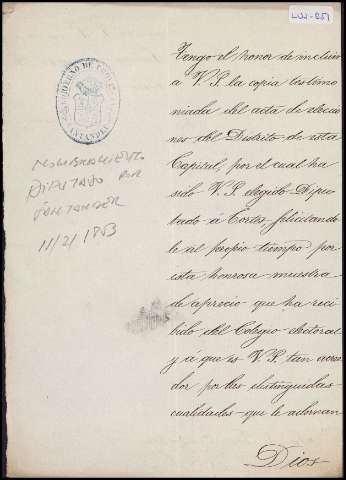 GOBIERNO DE PROVINCIA
SANTANDER
NOMBRAMIENTO
DIPUTADO POR
SANTANDER
11/2/1853
Tengo el honor de incluir
a V. S. la copia testimo
niada del acta de eleccio
nes del Distrito de esta
Capital, por el cual ha
sido V. S. elegido Dipu
tado á Cortes felicitando
le al propio tiempo por
esta honrosa muestra
de aprecio que ha reci
bido del Colegio electoral
y á que es V. S. tan acree
dor por las distinguidas
cualidades que le adornan
Dios